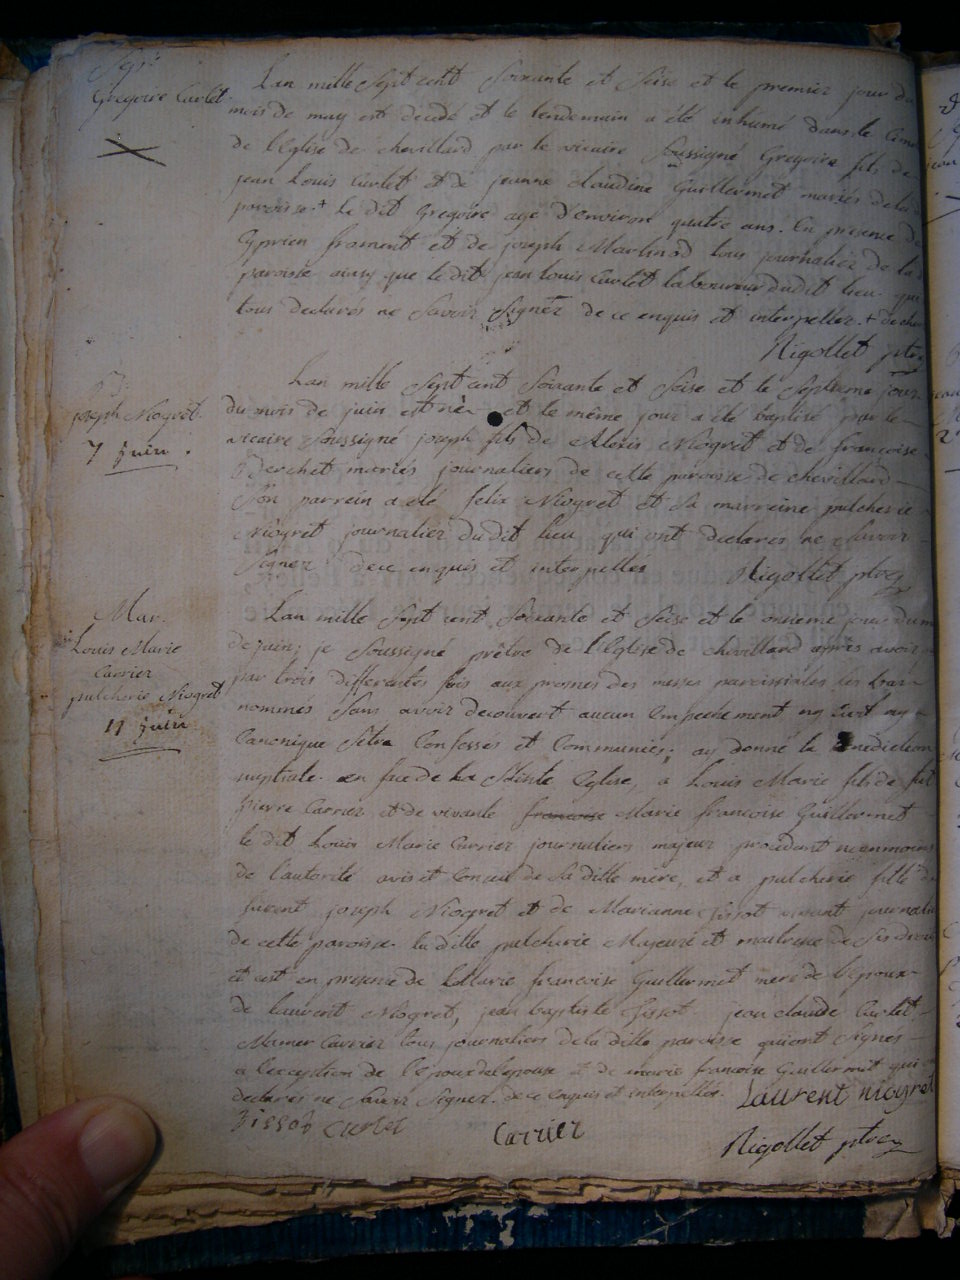 Sep.
Gregoire Curlet
Lan mille Sept cent Soixante et Seise et le premier jour du
mois de may est decedé et le lendemain a été inhumé dans le Cime
de l'Eglise de chevillard par le vicaire Soussigné Gregoire fils de
jean Louis Curlet et de jeanne claudine Guillermet mariés de la
paroisse + Le dit Gregoire agé d'environ quatre ans. En presence de
Cyprien froment et de joseph Martinod tous journalier de la
paroisse ainsy que le dit jean Louis Curlet laboureur dudit lieu qui
tous declarés ne Savoir Signer de ce enquis et interpellez. + de chev
Nigollet ptre
joseph Niogret.
7 juin.
Lan mille Sept cent Soixante et Seise et le Septieme jour
du mois de juin est né et le même jour a été baptisé par le
vicaire Soussigné joseph fils de Alexis Niogret et de francoise
Berchet mariés journaliers de cette paroisse de chevillard
Son parrein a été felix Niogret et Sa marreine pulcherie
Niogret journalier dudit lieu qui ont declares ne Savoir
Signer de ce enquis et interpellés Nigollet ptre
Mar.
Louis Marie
Carrier
pulcherie Niogret
11 juin
Lan mille Sept cent Soixante et Seise et le onzieme jour du m
de juin; je Soussigné prêtre de l'Eglise de chevillard apres avoir
par trois differentes fois aux prosnes des messes paroissiales les bans
nommés Sans avoir decouvert aucun Empechement ny Civil ny
Canonique S'etre Confessés et Communiés; ay donné la benediction
nuptiale en face de la Sainte Eglise, a Louis Marie fils de fut
pierre Carrier et de vivante francoise Marie francoise Guillermet
le dit Louis Marie Carrier journaliers majeur procedant neanmoins
de l'autorité avis et Conseil de Sa ditte mere, et a pulcherie fille de
furent joseph Niogret et de Marianne Jissot vivant journalie
de cette paroisse la ditte pulcherie Majeure et maitresse de Ses droits
et cest en presence de Marie francoise Guillermet mere de l'epoux
de laurent Niogret, jean baptiste Jissot jean claude Curlet
Mamer Carrier tous journaliers de la ditte paroisse qui ont Signés
a l'exception de l'Epoux de l'epouse et de marie francoise Guillermet qui
declarés ne Savoir Signer de ce enquis et interpellés. Laurent niogret
Jissot Curlet Carrier
Nigollet ptre